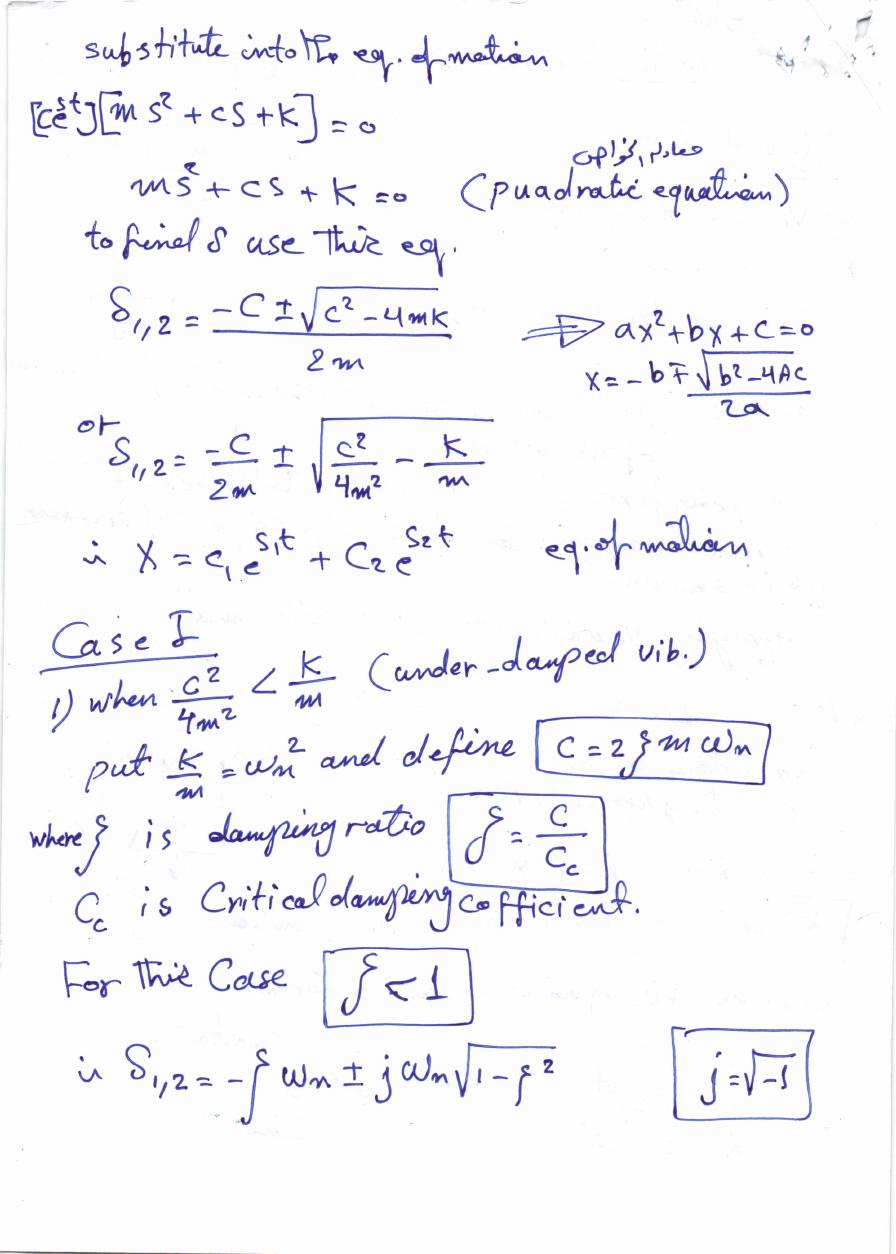 substitute into the eq. of motion
[ce^st][ms² + cs + k] = 0
ms² + cs + k = 0 (quadratic equation)
to find s use this eq.
S₁,₂ = (-C ± √(c² - 4mk)) / 2m
⇒ ax² + bx + c = 0
x = -b ∓ √(b² - 4AC) / 2a
or S₁,₂ = -C/2m ± √(c²/4m² - k/m)
∴ X = c₁e^S₁t + C₂e^S₂t eq. of motion
Case I
1) when c²/4m² < k/m (under-damped vib.)
put k/m = ωn² and define C = 2ξmωn
where ξ is damping ratio ξ = C/Cc
Cc is Critical damping cofficient.
For this Case ξ < 1
∴ S₁,₂ = -ξωn ± jωn√(1-ξ²) j = √-1